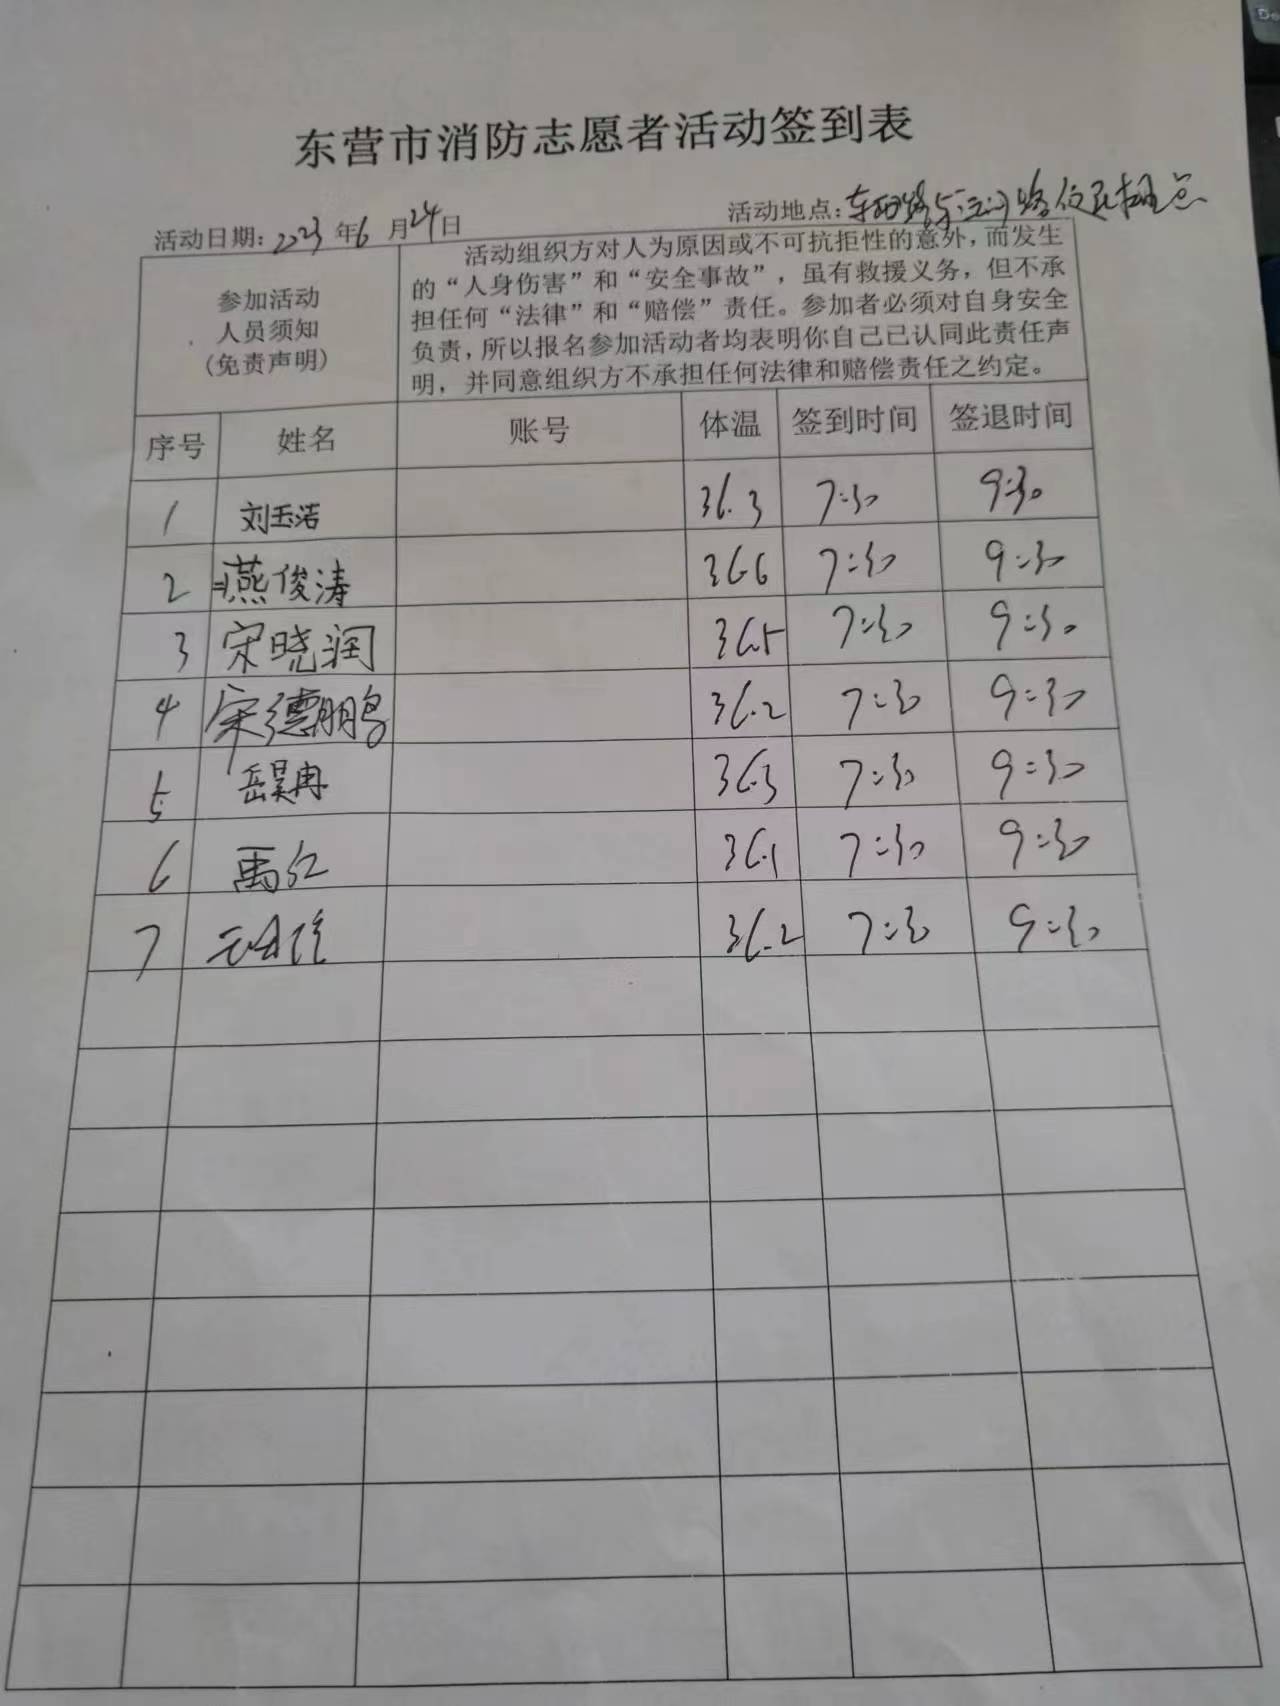 东营市消防志愿者活动签到表
活动日期: 2023 年 6 月 24 日 活动地点:
参加活动
人员须知
(免责声明)
活动组织方对人为原因或不可抗拒性的意外，而发生
的“人身伤害”和“安全事故”，虽有救援义务，但不承
担任何“法律”和“赔偿”责任。参加者必须对自身安全
负责，所以报名参加活动者均表明你自己已认同此责任声
明，并同意组织方不承担任何法律和赔偿责任之约定。
序号 姓名 账号 体温 签到时间 签退时间
1 刘玉洁 36.3 7:30 9:30
2 燕俊涛 36.6 7:30 9:30
3 宋晓润 36.5 7:30 9:30
4 宋德鹏 36.2 7:30 9:30
5 岳昊冉 36.3 7:30 9:30
6 禹红 36.1 7:30 9:30
7 36.2 7:30 9:30